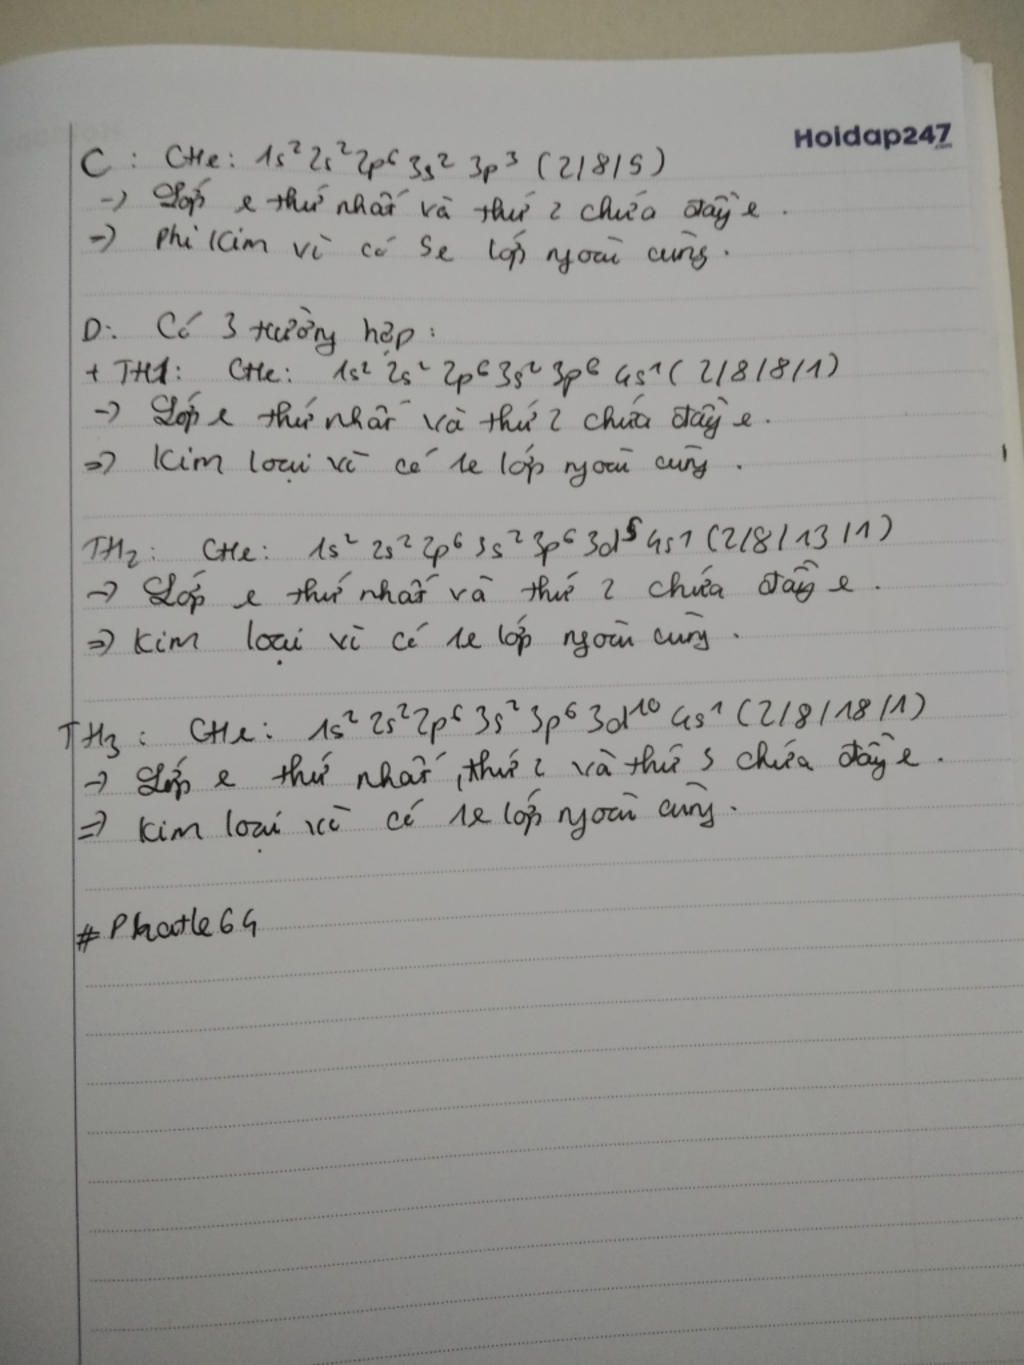 Hoidap247
.com
C: CHe: 1s² 2s² 2p⁶ 3s² 3p³ (2/8/5)
→ Lớp e thứ nhất và thứ 2 chứa đầy e.
→ Phi kim vì có 5e lớp ngoài cùng.
D: Có 3 trường hợp:
+ TH1: CHe: 1s² 2s² 2p⁶ 3s² 3p⁶ 4s¹ (2/8/8/1)
→ Lớp e thứ nhất và thứ 2 chứa đầy e.
⇒ Kim loại vì có 1e lớp ngoài cùng.
TH2: CHe: 1s² 2s² 2p⁶ 3s² 3p⁶ 3d⁵ 4s1 (2/8/13/1)
→ Lớp e thứ nhất và thứ 2 chứa đầy e.
⇒ Kim loại vì có 1e lớp ngoài cùng.
TH3: CHe: 1s² 2s² 2p⁶ 3s² 3p⁶ 3d¹⁰ 4s¹ (2/8/18/1)
→ Lớp e thứ nhất, thứ 2 và thứ 3 chứa đầy e.
⇒ Kim loại vì có 1e lớp ngoài cùng.
#Phatle64